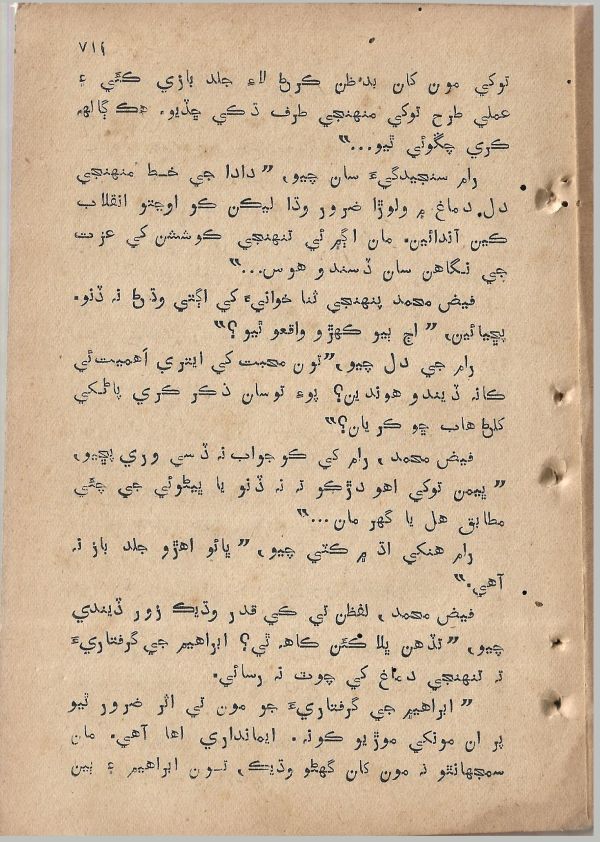 ٧١٦
توکي مون کان بدظن ڪرڻ لاءِ جلد بازي ڪئي ۽
عملي طرح توکي منهنجي طرف ڌڪي ڇڏيو. هڪ ڳالهہ
ڪري چڱوئي ٿيو...“
رام سنجيدگيءَ سان چيو، ”دادا جي خط منهنجي
دل. دماغ ۾ ولوڙا ضرور وڌا ليڪن ڪو اوچتو انقلاب
ڪين آندائين. مان اڳ۾ ئي تنهنجي ڪوششن کي عزت
جي نگاهن سان ڏسندو هوس...“
فيض محمد پنهنجي ثنا خوانيءَ کي اڳتي وڌڻ نہ ڏنو.
پڇيائين، ”اڄ ٻيو ڪهڙو واقعو ٿيو؟“
رام جي دل چيو، ”تون محبت کي ايتري اَهميت ئي
ڪانہ ڏيندو هوندين؟ پوءِ توسان ذڪر ڪري پاڻکي
کلڻ هاب ڇو ڪريان؟“
فيض محمد، رام کي ڪو جواب نہ ڏسي وري پڇيو،
”ڀيمن توکي اهو دڙڪو تہ نہ ڏنو يا پيٽوئي جي چئي
مطابق هل يا گهر مان...“
رام هنکي اڌ ۾ ڪٽي چيو، ”ڀائو اهڙو جلد باز نہ
آهي.“
فيض محمد، لفظن تي ڪي قدر وڌيڪ زور ڏيندي
چيو، ”تڏهن ڀلا ڪٿن ڪاهہ ٿي؟ ابراهيم جي گرفتاريءَ
تہ تنهنجي دماغ کي چوٽ نہ رسائي.
”ابراهيم جي گرفتاريءَ جو مون تي اثر ضرور ٿيو
پر ان مونکي موڙيو ڪونہ. ايمانداري اها آهي. مان
سمجهانٿو تہ مون کان گهڻو وڌيڪ، تون ابراهيم ۽ ٻين